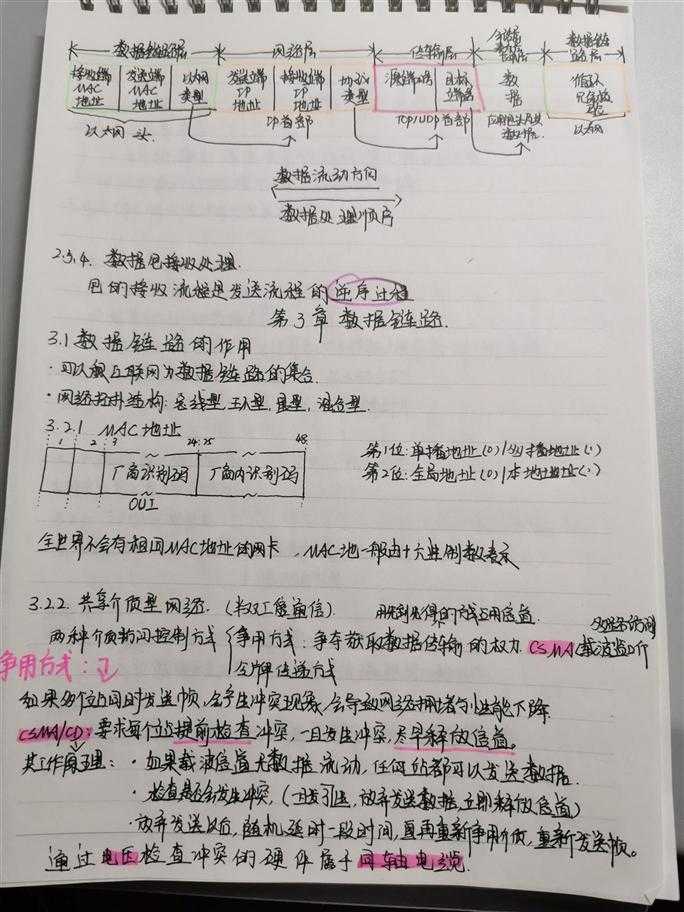 数据链路层 网络层 传输层 应用层 数据链路层
接收端MAC地址 发送端MAC地址 以太网类型 发送端IP地址 接收端IP地址 协议类型 源端口号 目标端口号 数据 循环冗余校验
以太网头 IP首部 TCP/UDP首部 以太网
数据流动方向
数据处理顺序
2.5.4. 数据包接收处理.
包的接收流程是发送流程的逆序过程
第3章 数据链路.
3.1 数据链路的作用
·可以视互联网为数据链路的集合.
·网络拓扑结构: 总线型, 环型, 星型, 混合型.
3.2.1 MAC地址
1 2 3 ~ 24 25 ~ 48
厂商识别码 厂商内识别码
OUI
第1位: 单播地址(0)/多播地址(1)
第2位: 全局地址(0)/本地地址(1)
全世界不会有相同MAC地址的网卡, MAC地一般由十六进制数表示
3.2.2. 共享介质型网络. (半双工通信) 用先到先得的方式占用信道.
两种介质访问控制方式 争用方式: 争夺获取数据传输的权力. CSMA载波监听
多路访问
令牌传递方式
争用方式:
如果多个站同时发送帧, 会产生冲突现象, 会导致网络拥堵与性能下降.
CSMA/CD: 要求每个站提前检查冲突, 一旦发生冲突, 尽早释放信道。
其工作原理: ·如果载波信道无数据流动, 任何站都可以发送数据.
·检查是否会发生冲突, (一旦发生, 放弃发送数据, 立即释放信道)
·放弃发送以后, 随机延时一段时间, 再重新争用介质, 重新发送帧。
通过电压检查冲突的硬件属于同轴电缆.